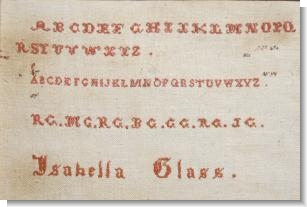 ABCDEFGHIJKLMNOPQ
RSTUVWXYZ.
ABCDEFGHIJKLMNOPQRSTUVWXYZ.
RG. MG. RG. BG. GG. RG. JG.
Isabella Glass.